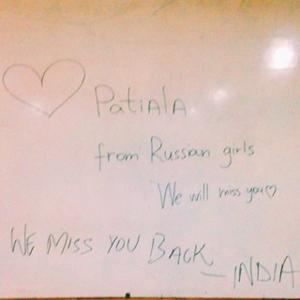 PatiAlA
from Russian girls
We will miss you♡
WE MISS YOU BACK
— INDIA